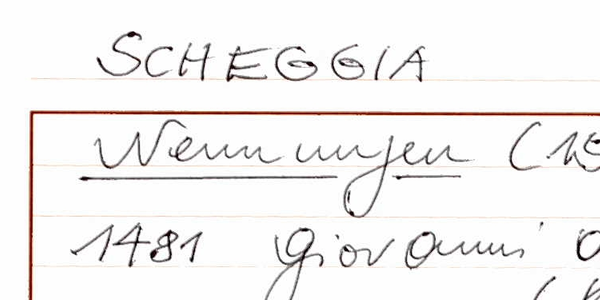 SCHEGGIA
Nennungen (15
1481 Giovanni